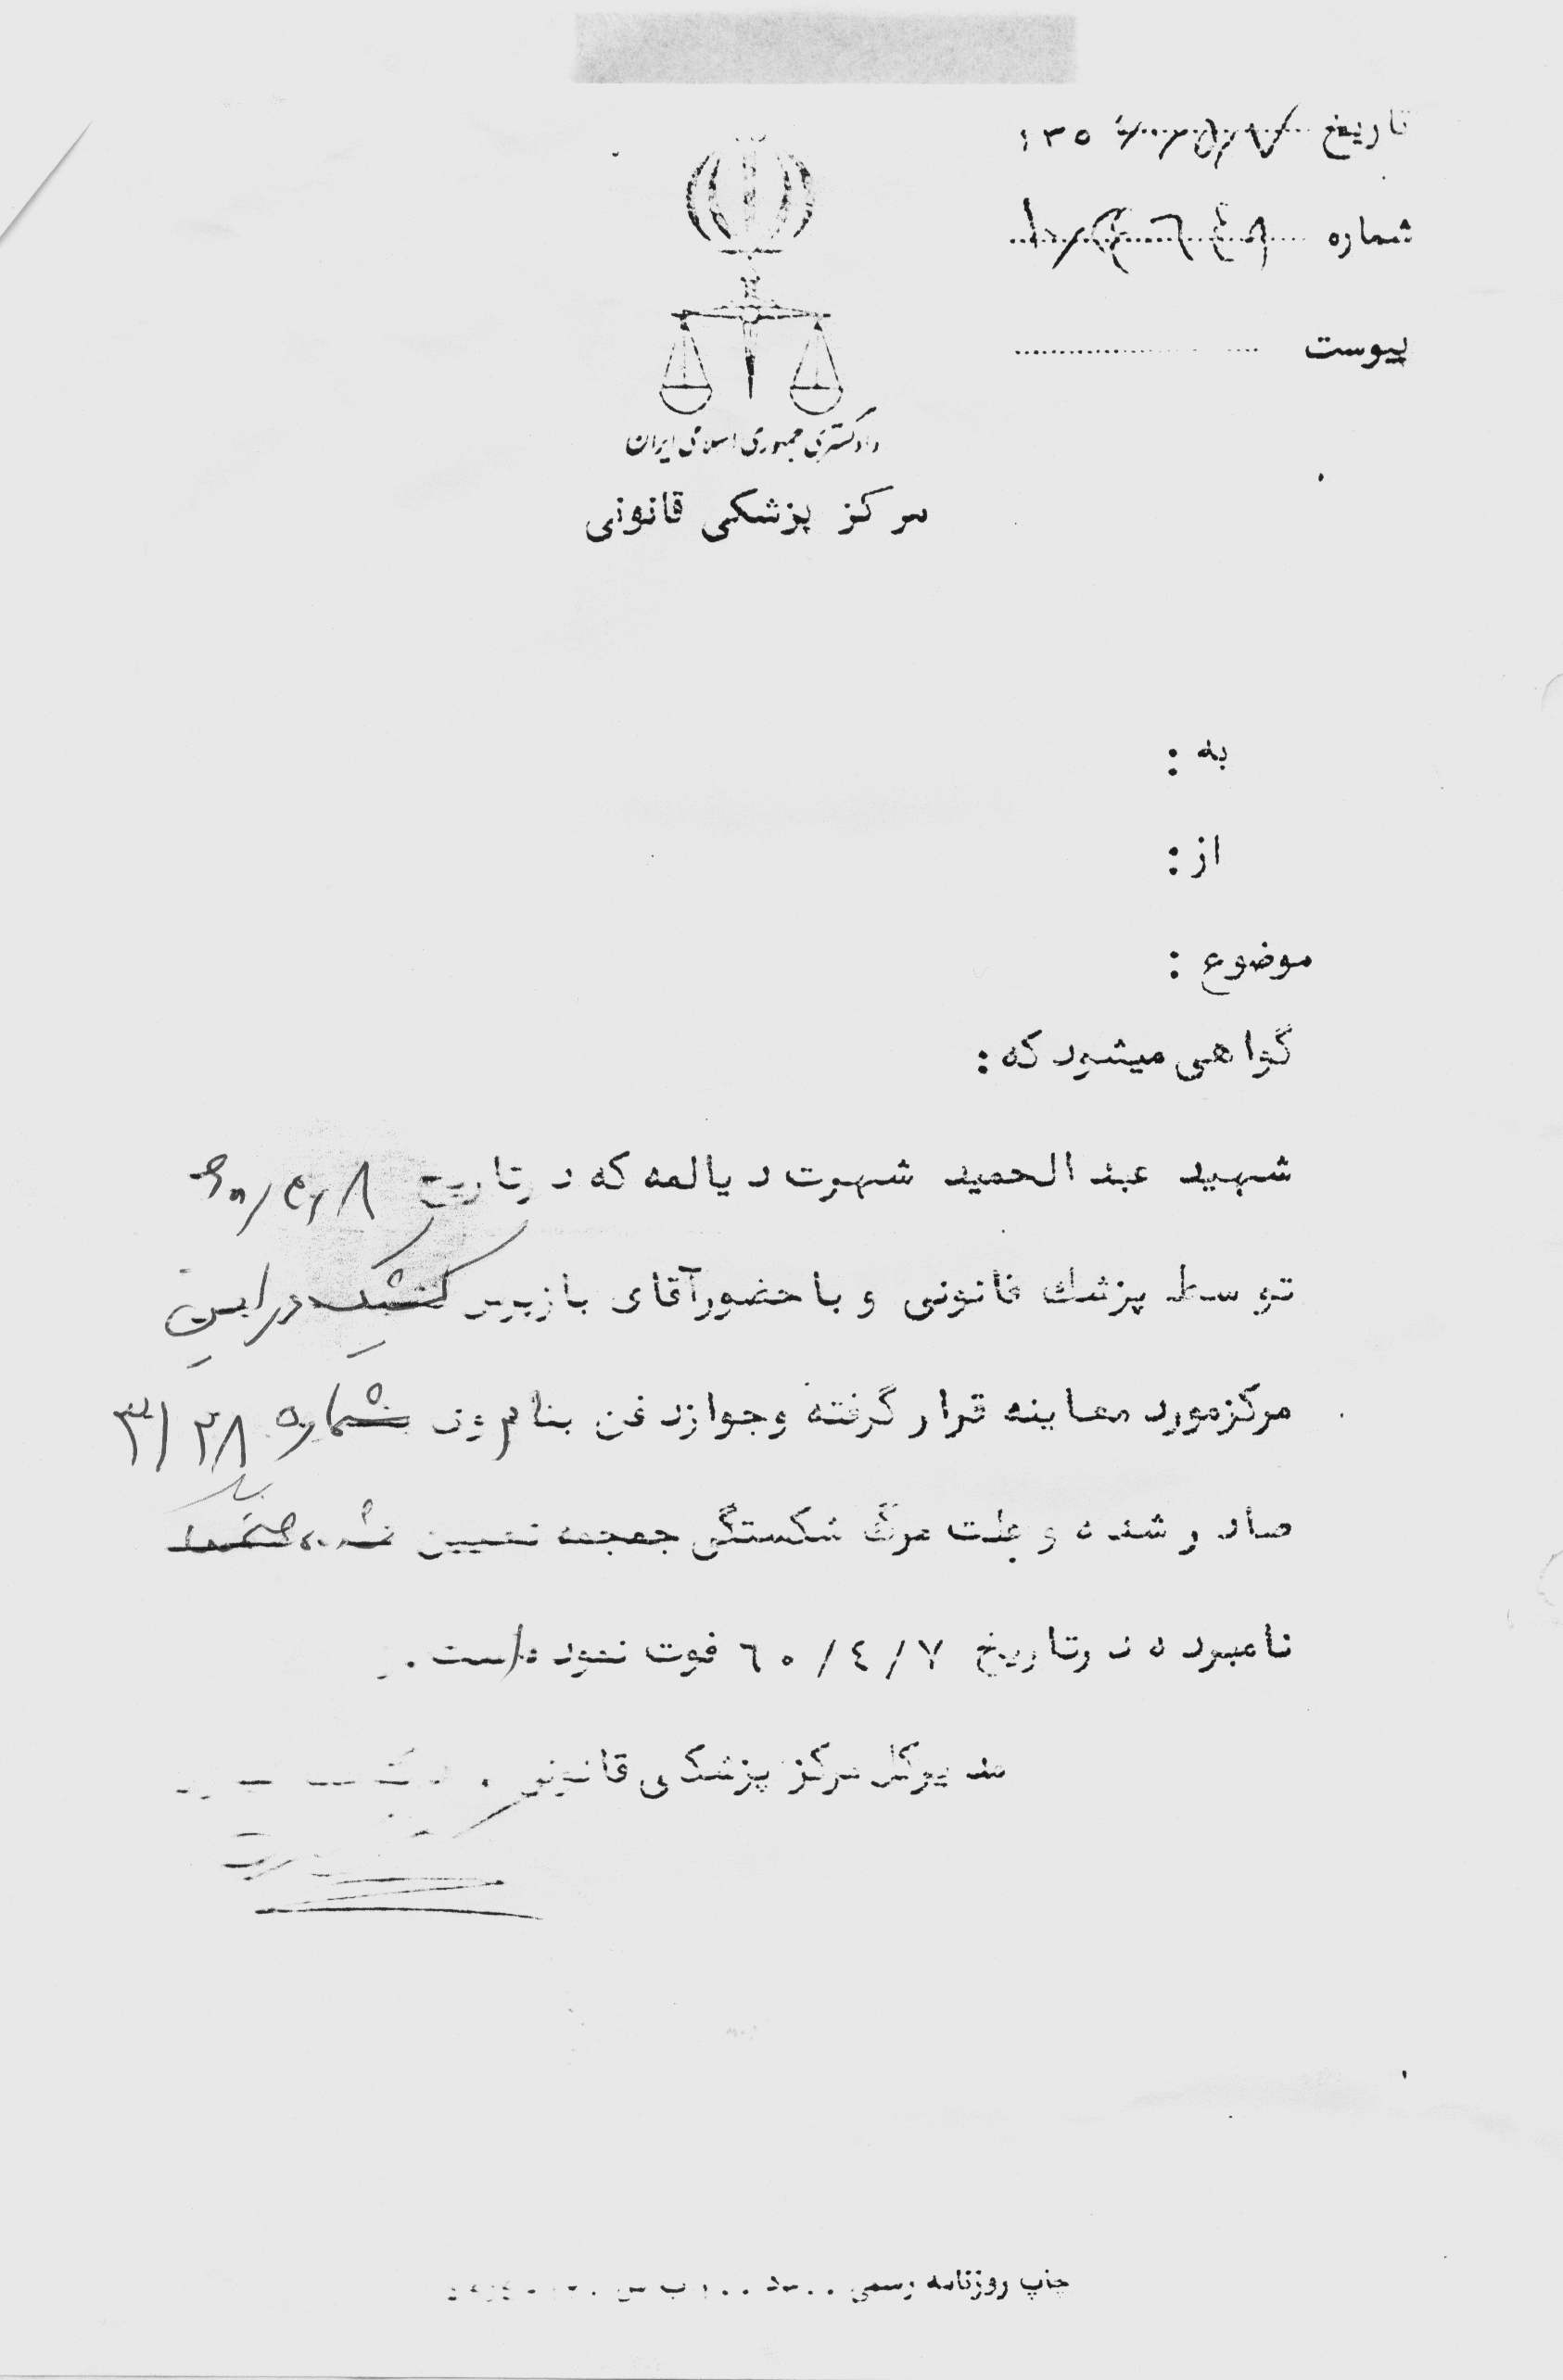 تاریخ ۱۳۵
شماره
پیوست
دادگستری جمهوری اسلامی ایران
مرکز پزشکی قانونی
به :
از :
موضوع :
گواهی میشود که :
شهید عبدالحمید شهرت دیالمه که در تاریخ ۶۰/۴/۸
توسط پزشك قانونی و با حضور آقای بازپرس کشیک در این
مرکز مورد معاینه قرار گرفته و جواز دفن بنام وی شماره ۳۱۲۸
صادر شده و علت مرگ شکستگی جمجمه تعیین شده
نامبرده در تاریخ ٦٠/٤/٧ فوت نموده است .
مدیرکل مرکز پزشکی قانونی
چاپ روزنامه رسمی